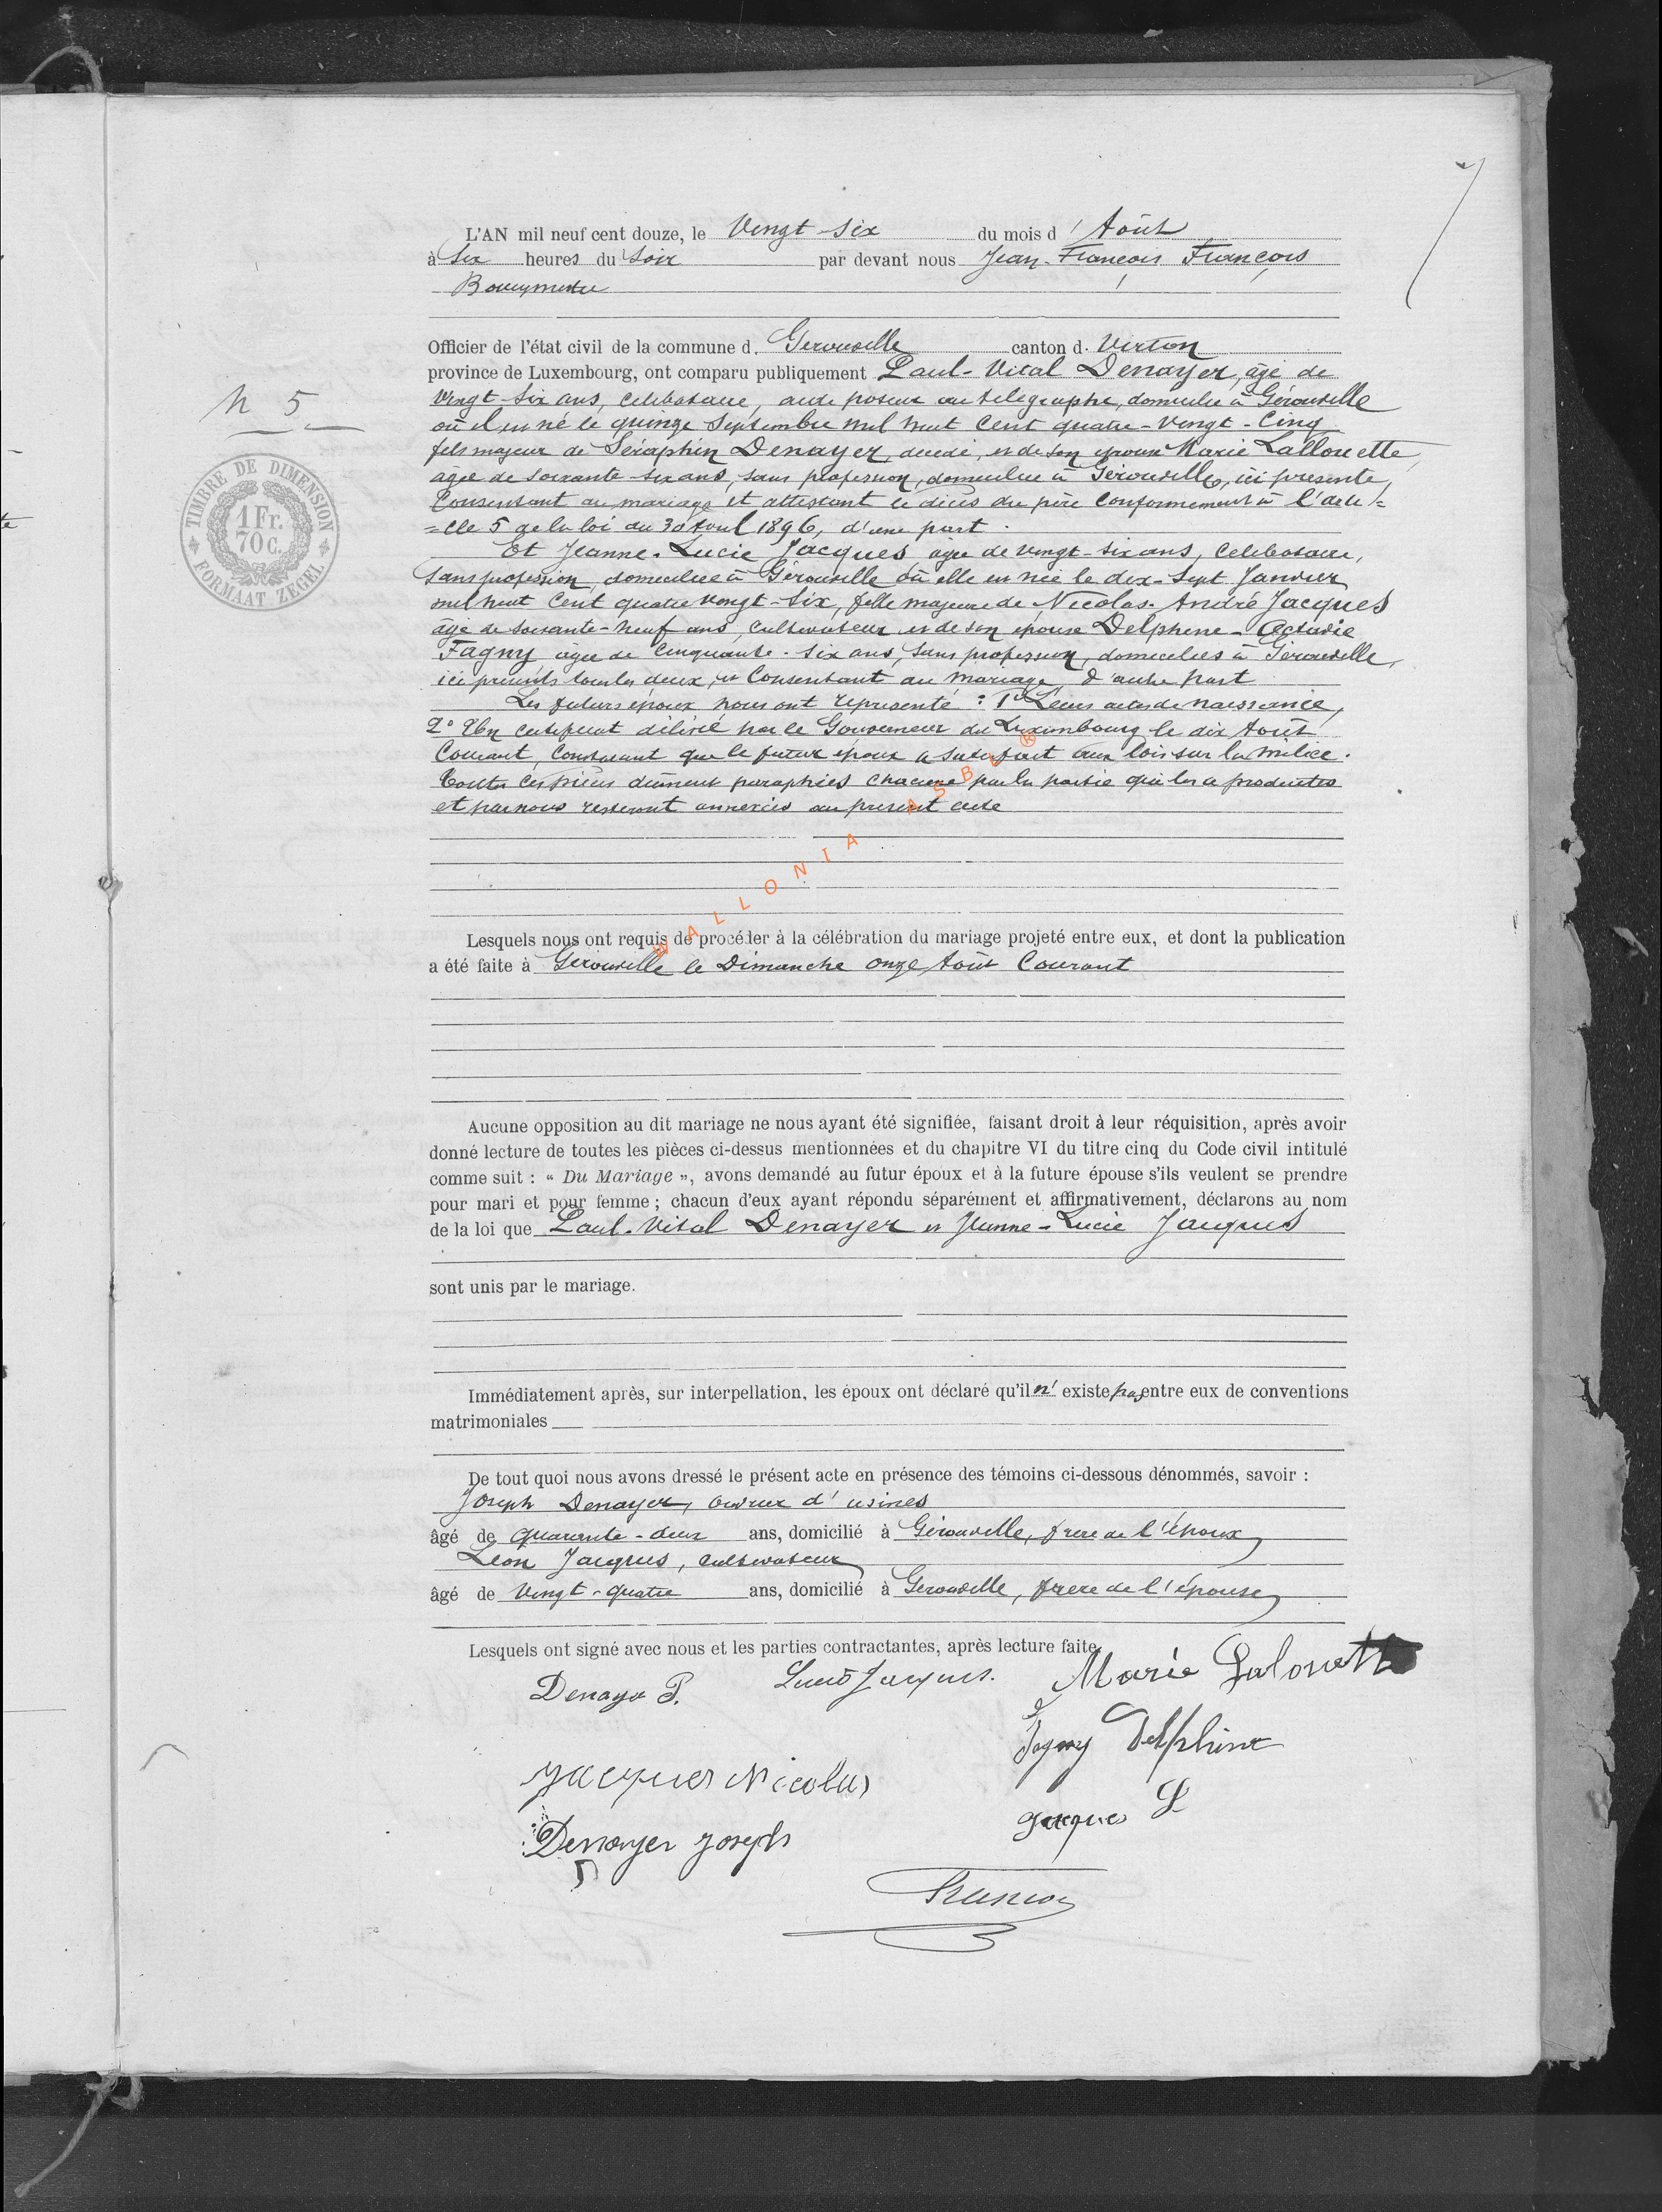 7
L'AN mil neuf cent douze, le Vingt-six du mois d'Août
à Six heures du Soir par devant nous Jean-François François
Bourgmestre
Officier de l'état civil de la commune d. Gérouville canton d. Virton
province de Luxembourg, ont comparu publiquement Paul-Vital Denayer, âgé de
Vingt-six ans, célibataire, aide poseur au télégraphe, domicilié à Gérouville
N 5
où il est né le quinze Septembre mil huit Cent quatre-Vingt-Cinq
fils majeur de Séraphin Denayer, décédé, et de son épouse Marie Lallouette,
âgée de soixante-six ans, sans profession, domiciliée à Gérouville, ici présente,
Consentant au mariage et attestant le décès du père Conformément à l'arti-
=cle 5 de la loi du 30 Avril 1896, d'une part.
TIMBRE DE DIMENSION
1 Fr.
70 C.
FORMAAT ZEGEL
Et Jeanne-Lucie Jacques âgée de vingt-six ans, Célibataire,
Sans profession, domiciliée à Gérouville où elle est née le dix-Sept Janvier
mil huit Cent quatre vingt-Six, fille majeure de Nicolas-André Jacques
âgé de soixante-neuf ans, Cultivateur et de son épouse Delphine-Octavie
Fagny âgée de Cinquante-six ans, Sans profession, domiciliés à Gérouville,
ici présents tous les deux, et Consentant au mariage, d'autre part
Les futurs époux nous ont représenté : 1° Leurs actes de naissance,
2° Un certificat délivré par le Gouverneur du Luxembourg le dix Août
Courant, Constatant que le futur époux a satisfait aux lois sur la milice.
Toutes ces pièces dûment paraphées chacune par la partie qui les a produites
et par nous resteront annexées au présent acte
WALLONIA ASBL ®
Lesquels nous ont requis de procéder à la célébration du mariage projeté entre eux, et dont la publication
a été faite à Gérouville le Dimanche onze Août Courant
Aucune opposition au dit mariage ne nous ayant été signifiée, faisant droit à leur réquisition, après avoir
donné lecture de toutes les pièces ci-dessus mentionnées et du chapitre VI du titre cinq du Code civil intitulé
comme suit : « Du Mariage », avons demandé au futur époux et à la future épouse s'ils veulent se prendre
pour mari et pour femme ; chacun d'eux ayant répondu séparément et affirmativement, déclarons au nom
de la loi que Paul-Vital Denayer et Jeanne-Lucie Jacques
sont unis par le mariage.
Immédiatement après, sur interpellation, les époux ont déclaré qu'il n' existe pas entre eux de conventions
matrimoniales
De tout quoi nous avons dressé le présent acte en présence des témoins ci-dessous dénommés, savoir :
Joseph Denayer, ouvrier d'usines
âgé de quarante-deux ans, domicilié à Gérouville, frère de l'époux
Léon Jacques, Cultivateur
âgé de Vingt-quatre ans, domicilié à Gérouville, frère de l'épouse
Lesquels ont signé avec nous et les parties contractantes, après lecture faite
Denayer P. Lucie Jacques. Marie Lalouette
Fagny Delphine
Jacques Nicolas
Jacques L
Denayer Joseph
François